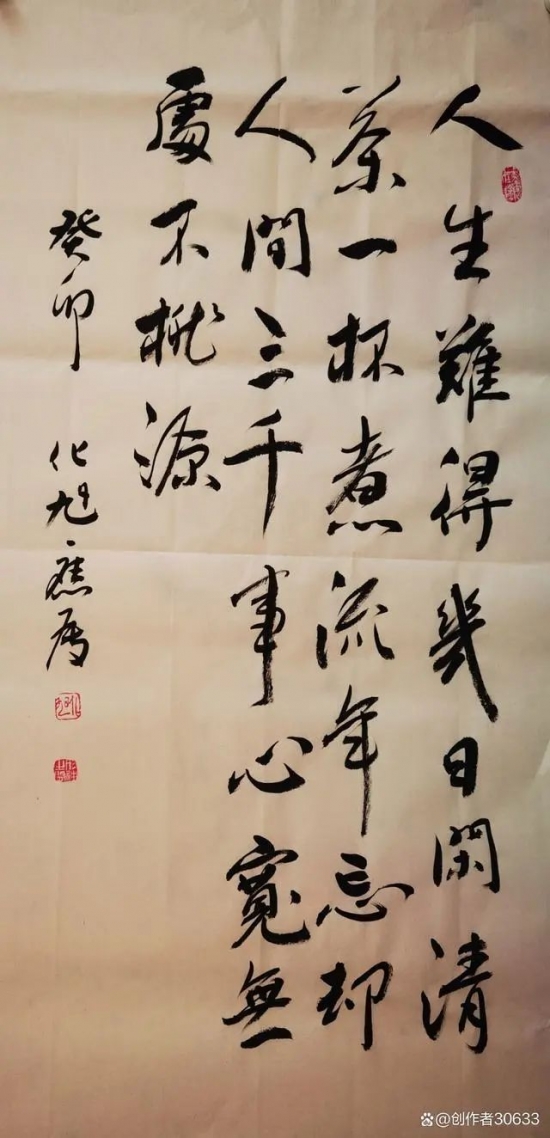 人生難得幾日閑清
茶一杯煮流年忘却
人間三千事心寬無
處不桃源
癸卯 化旭應屬
@创作者30633